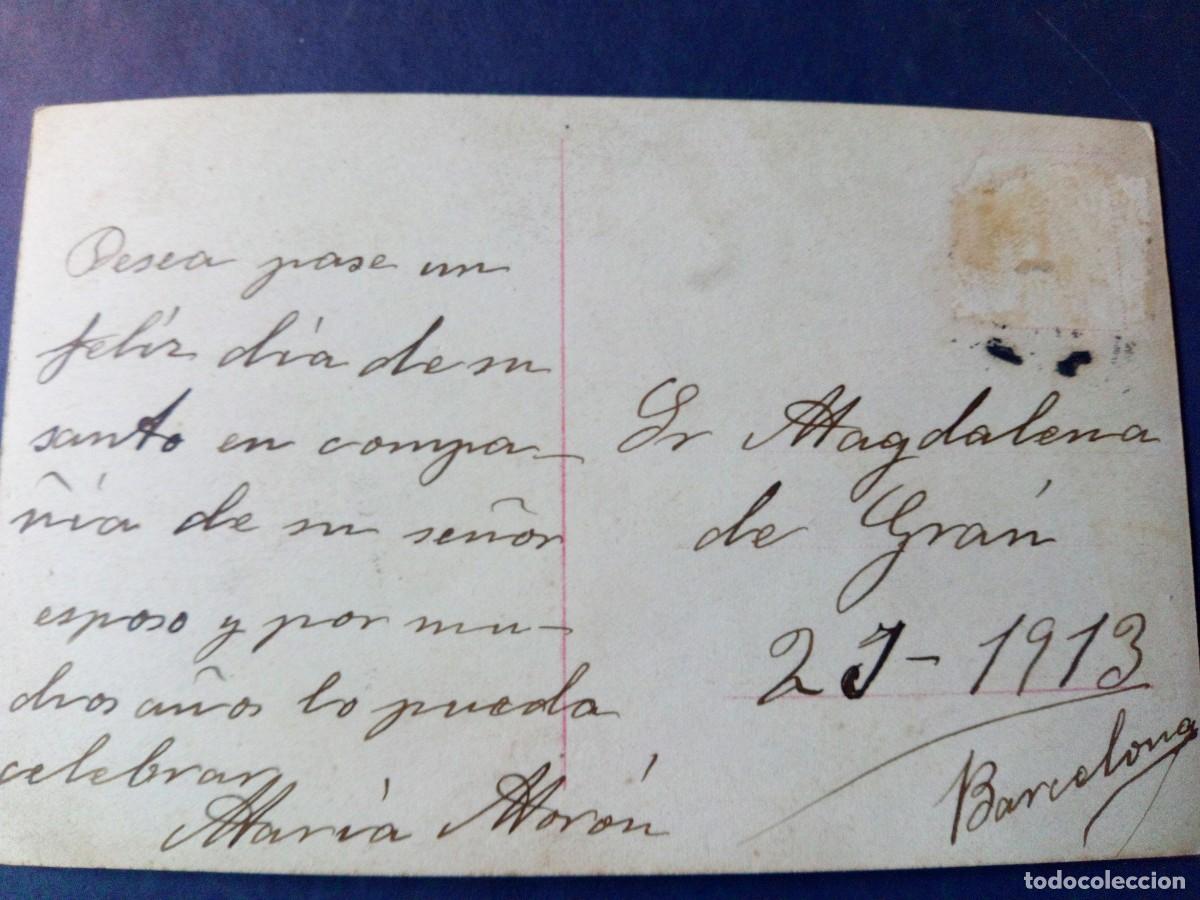 Desea pase un
feliz dia de su
santo en compa-
ñia de su señor
esposo y por mu-
chos años lo pueda
celebrar
María Morón
Sr Magdalena
de Grán
2 J - 1913
Barcelona
todocoleccion